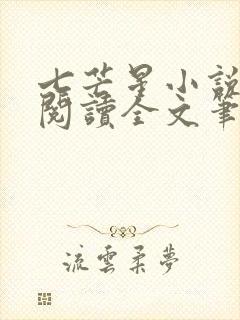 七芒星小說
閱讀全文筆
流雲柔夢